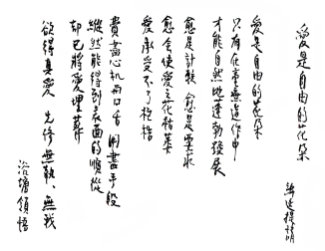 愛是自由的花朵
愛是自由的花朵
只有在無為造作中
才能自然地蓬勃發展
愈是計較 愈是要求
愈會使愛之花枯萎
愛承受不了桎梏
費盡心机和口舌 用盡手段
縱然能得到表面的順從
却已將愛埋葬
欲得真愛 先修無執、無我